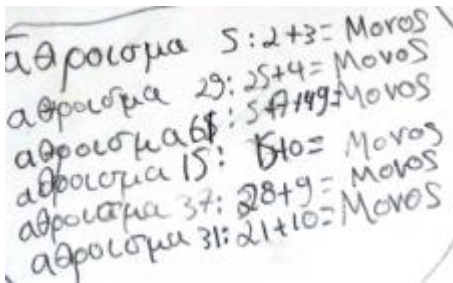 άθροισμα 5:2+3= Μονοs
αθροισμα 29:25+4= Μονοs
αθροισμα : Μονοs
αθροισμα 15: Μονοs
αθροισμα 37:28+9= Μονοs
αθροισμα 31:21+10= Μονοs